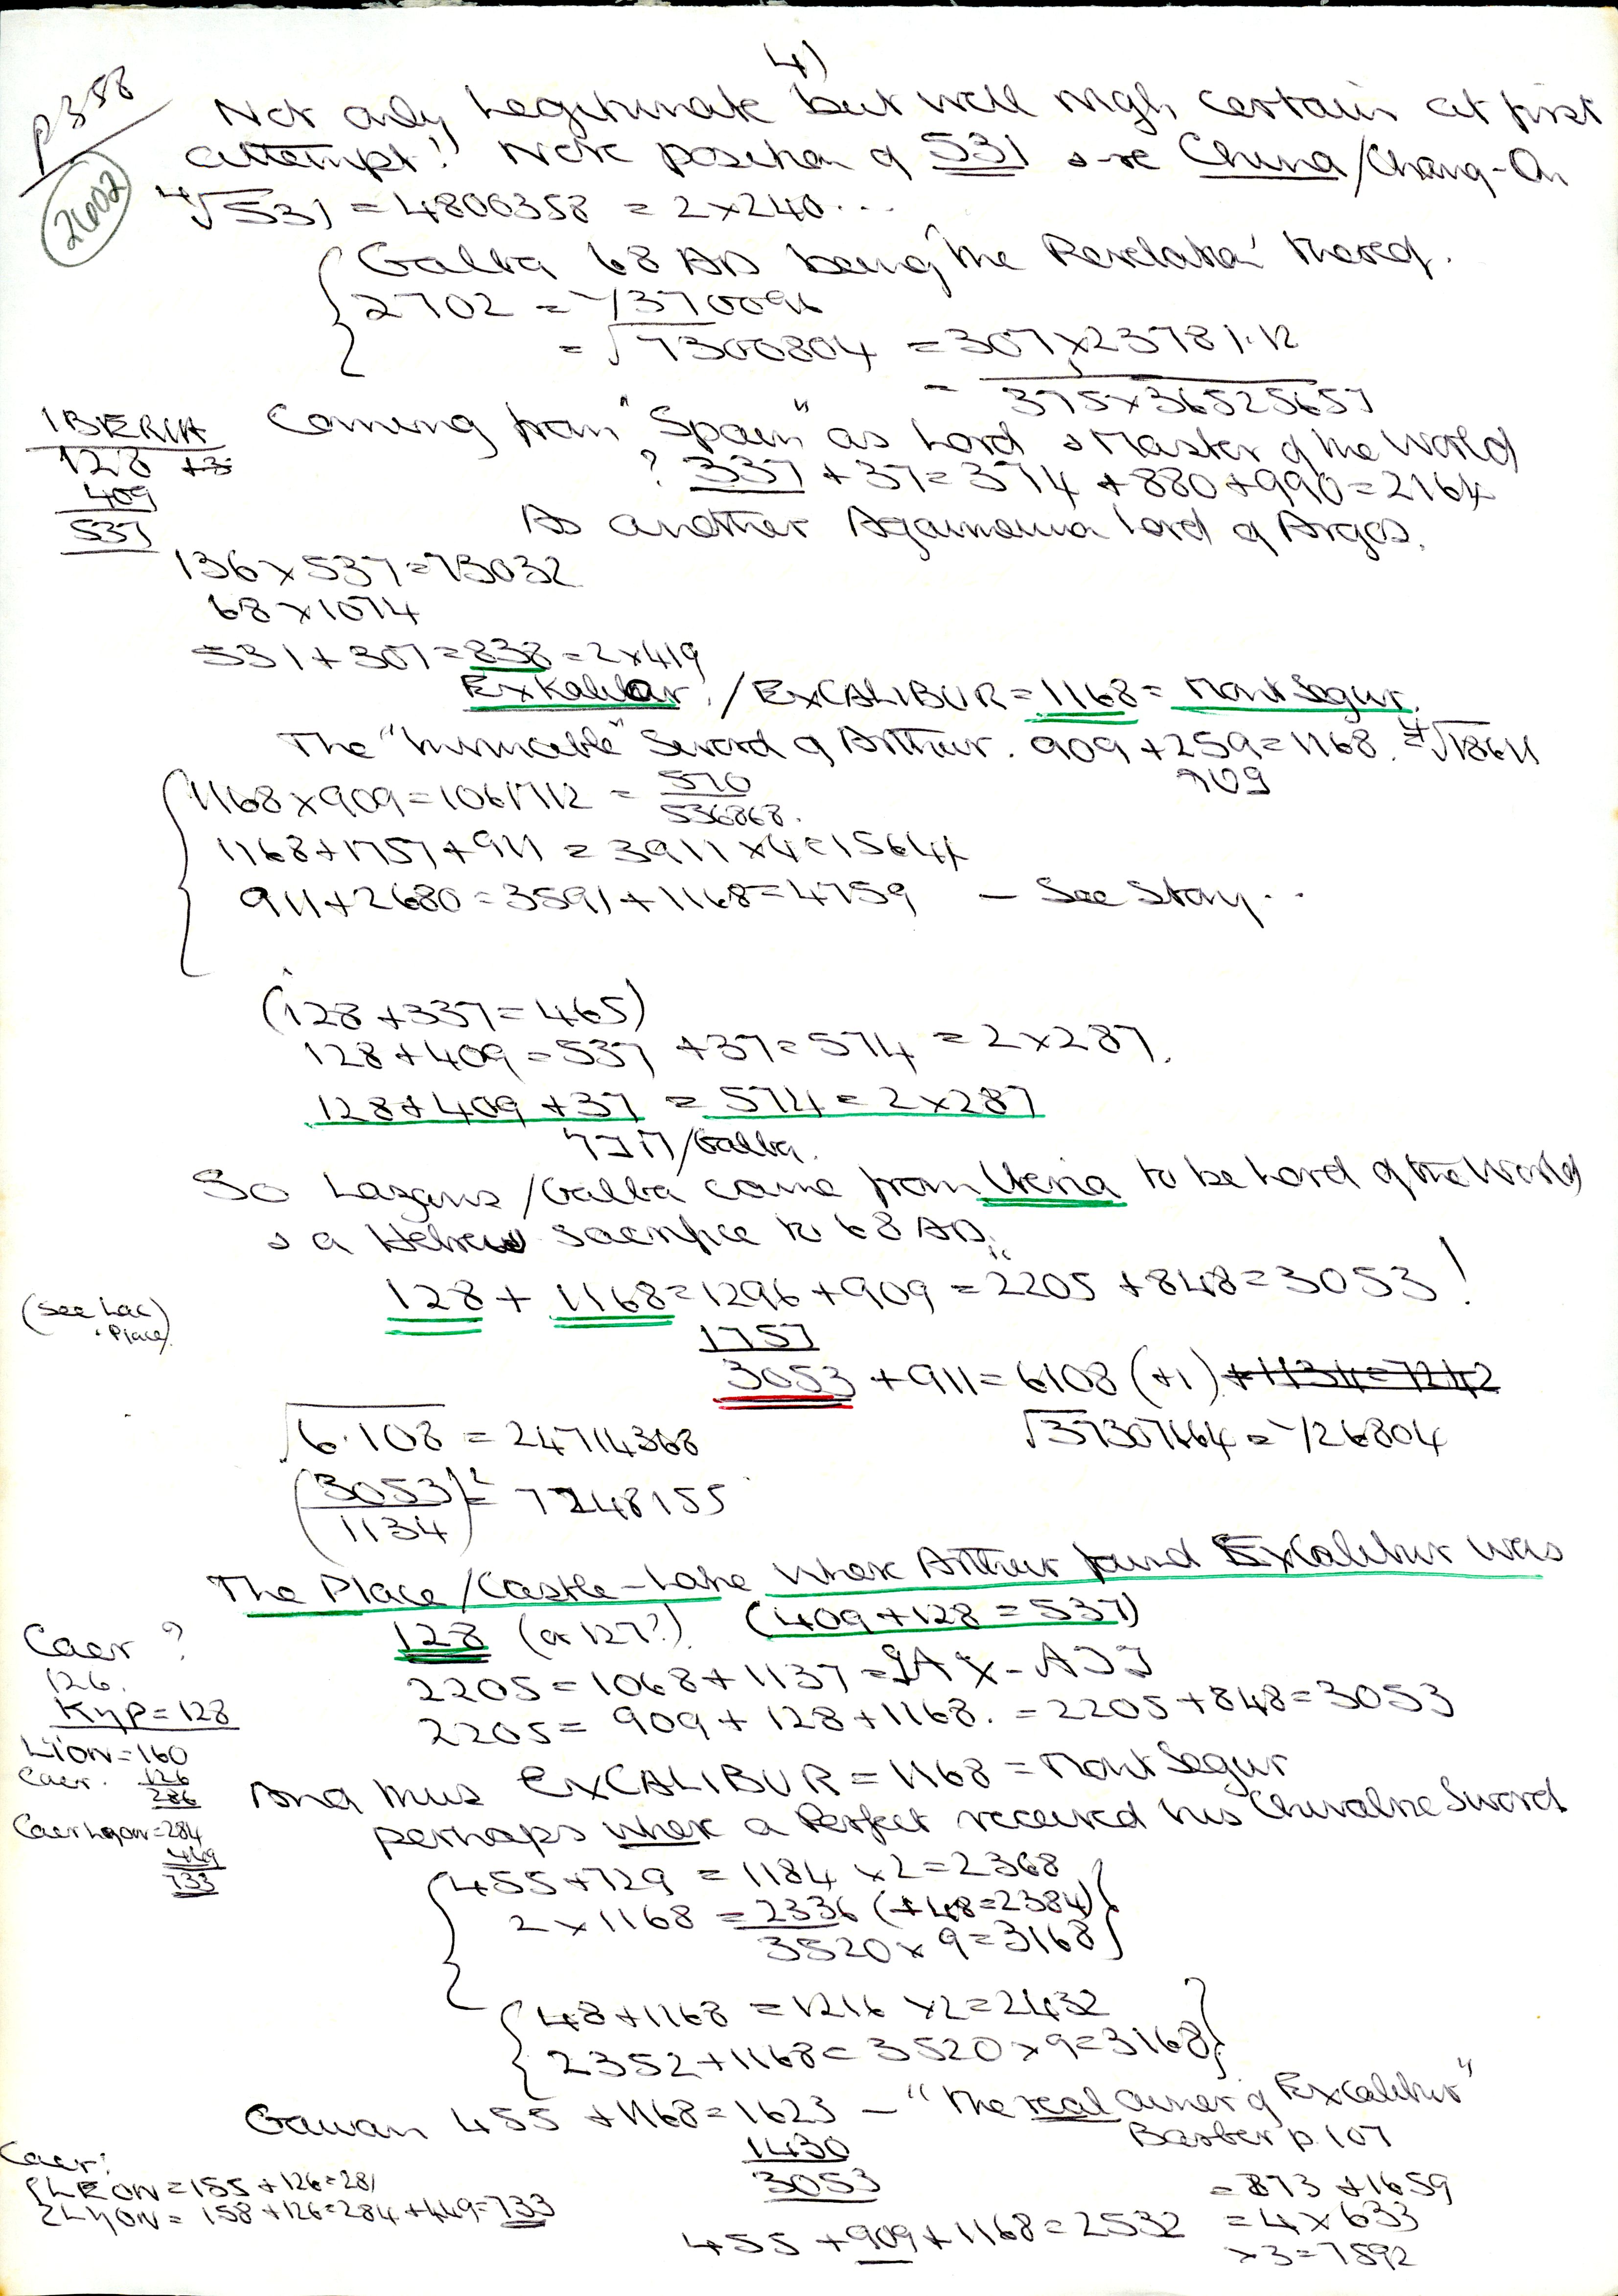 4)
P358
Not only Legitimate but well nigh certain at first
attempt! Note position of 531 & re China/Chang-An
26002
4√531 = 4800358 = 2x240...
Galba 68 AD being 'the Revelation' thereof.
2702 = √1370096
= √7300804 = 307x23781.12
= 375x36525657
IBERIA
128 +3
409
537
Coming from "Spain" as Lord & Master of the World
? 337 + 37 = 374 + 880 + 990 = 2164
As another Agamemnon Lord of Argos.
136 x 537 = 73032
68 x 1074
531 + 307 = 838 = 2x419
ExKalibur / EXCALIBUR = 1168 = Mont Segur.
The "Invincible" Sword of Arthur. 909 + 259 = 1168. = 4√18611
909
1168 x 909 = 1061712 = 570
536868.
1168 + 1757 + 911 = 3911 x 4 = 15644
911 + 2680 = 3591 + 1168 = 4759 — See Story..
(128 + 337 = 465)
128 + 409 = 537 + 37 = 574 = 2x287.
128 + 409 + 37 = 574 = 2x287
/Galba.
So Lazarus/Galba came from Iberia to be Lord of the World
& a Hebrew sacrifice to 68 AD.
128 + 1168 = 1296 + 909 = 2205 + 848 = 3053!
(See Lac
Place)
1757
3053 + 911 = 6108 (+1) + 1134 = 7242
√6.108 = 24714368
√37307664 = √126804
(3053/1134)² = 7248155
The Place/Castle-Lake where Arthur found Excalibur was
128 (or 127?) (409 + 128 = 537)
Caer ?
126.
Kyp = 128
2205 = 1068 + 1137
2205 = 909 + 128 + 1168. = 2205 + 848 = 3053
Lion = 160
Caer. 126
286
And thus EXCALIBUR = 1168 = Mont Segur
perhaps where a Perfect received his Chivalric Sword
Caerlyon = 284
449
733
455 + 729 = 1184 x 2 = 2368
2 x 1168 = 2336 (+48 = 2384)
3520 x 9 = 3168
48 + 1168 = 1216 x 2 = 2432
2352 + 1168 = 3520 x 9 = 3168
Gawan 455 + 1168 = 1623 — "The real owner of Excalibur"
Barber p. 107
1430
3053
Caer:
LEON = 155 + 126 = 281
LYON = 158 + 126 = 284 + 449 = 733
455 + 909 + 1168 = 2532
= 873 + 1659
= 4 x 633
x 3 = 7592